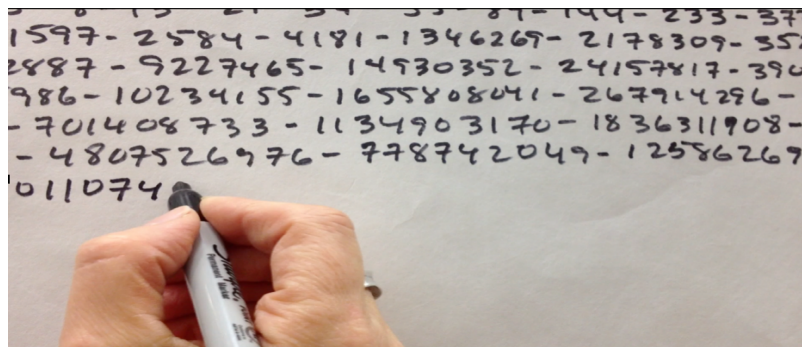 8 - 13 - 21 - 34 - 55 - 89 - 144 - 233 - 37
1597 - 2584 - 4181 - 1346269 - 2178309 - 35
2887 - 9227465 - 14930352 - 24157817 - 390
986 - 10234155 - 1655808041 - 267914296 -
- 701408733 - 1134903170 - 1836311908 -
- 4807526976 - 778742049 - 12586269
011074
Permanent Marker